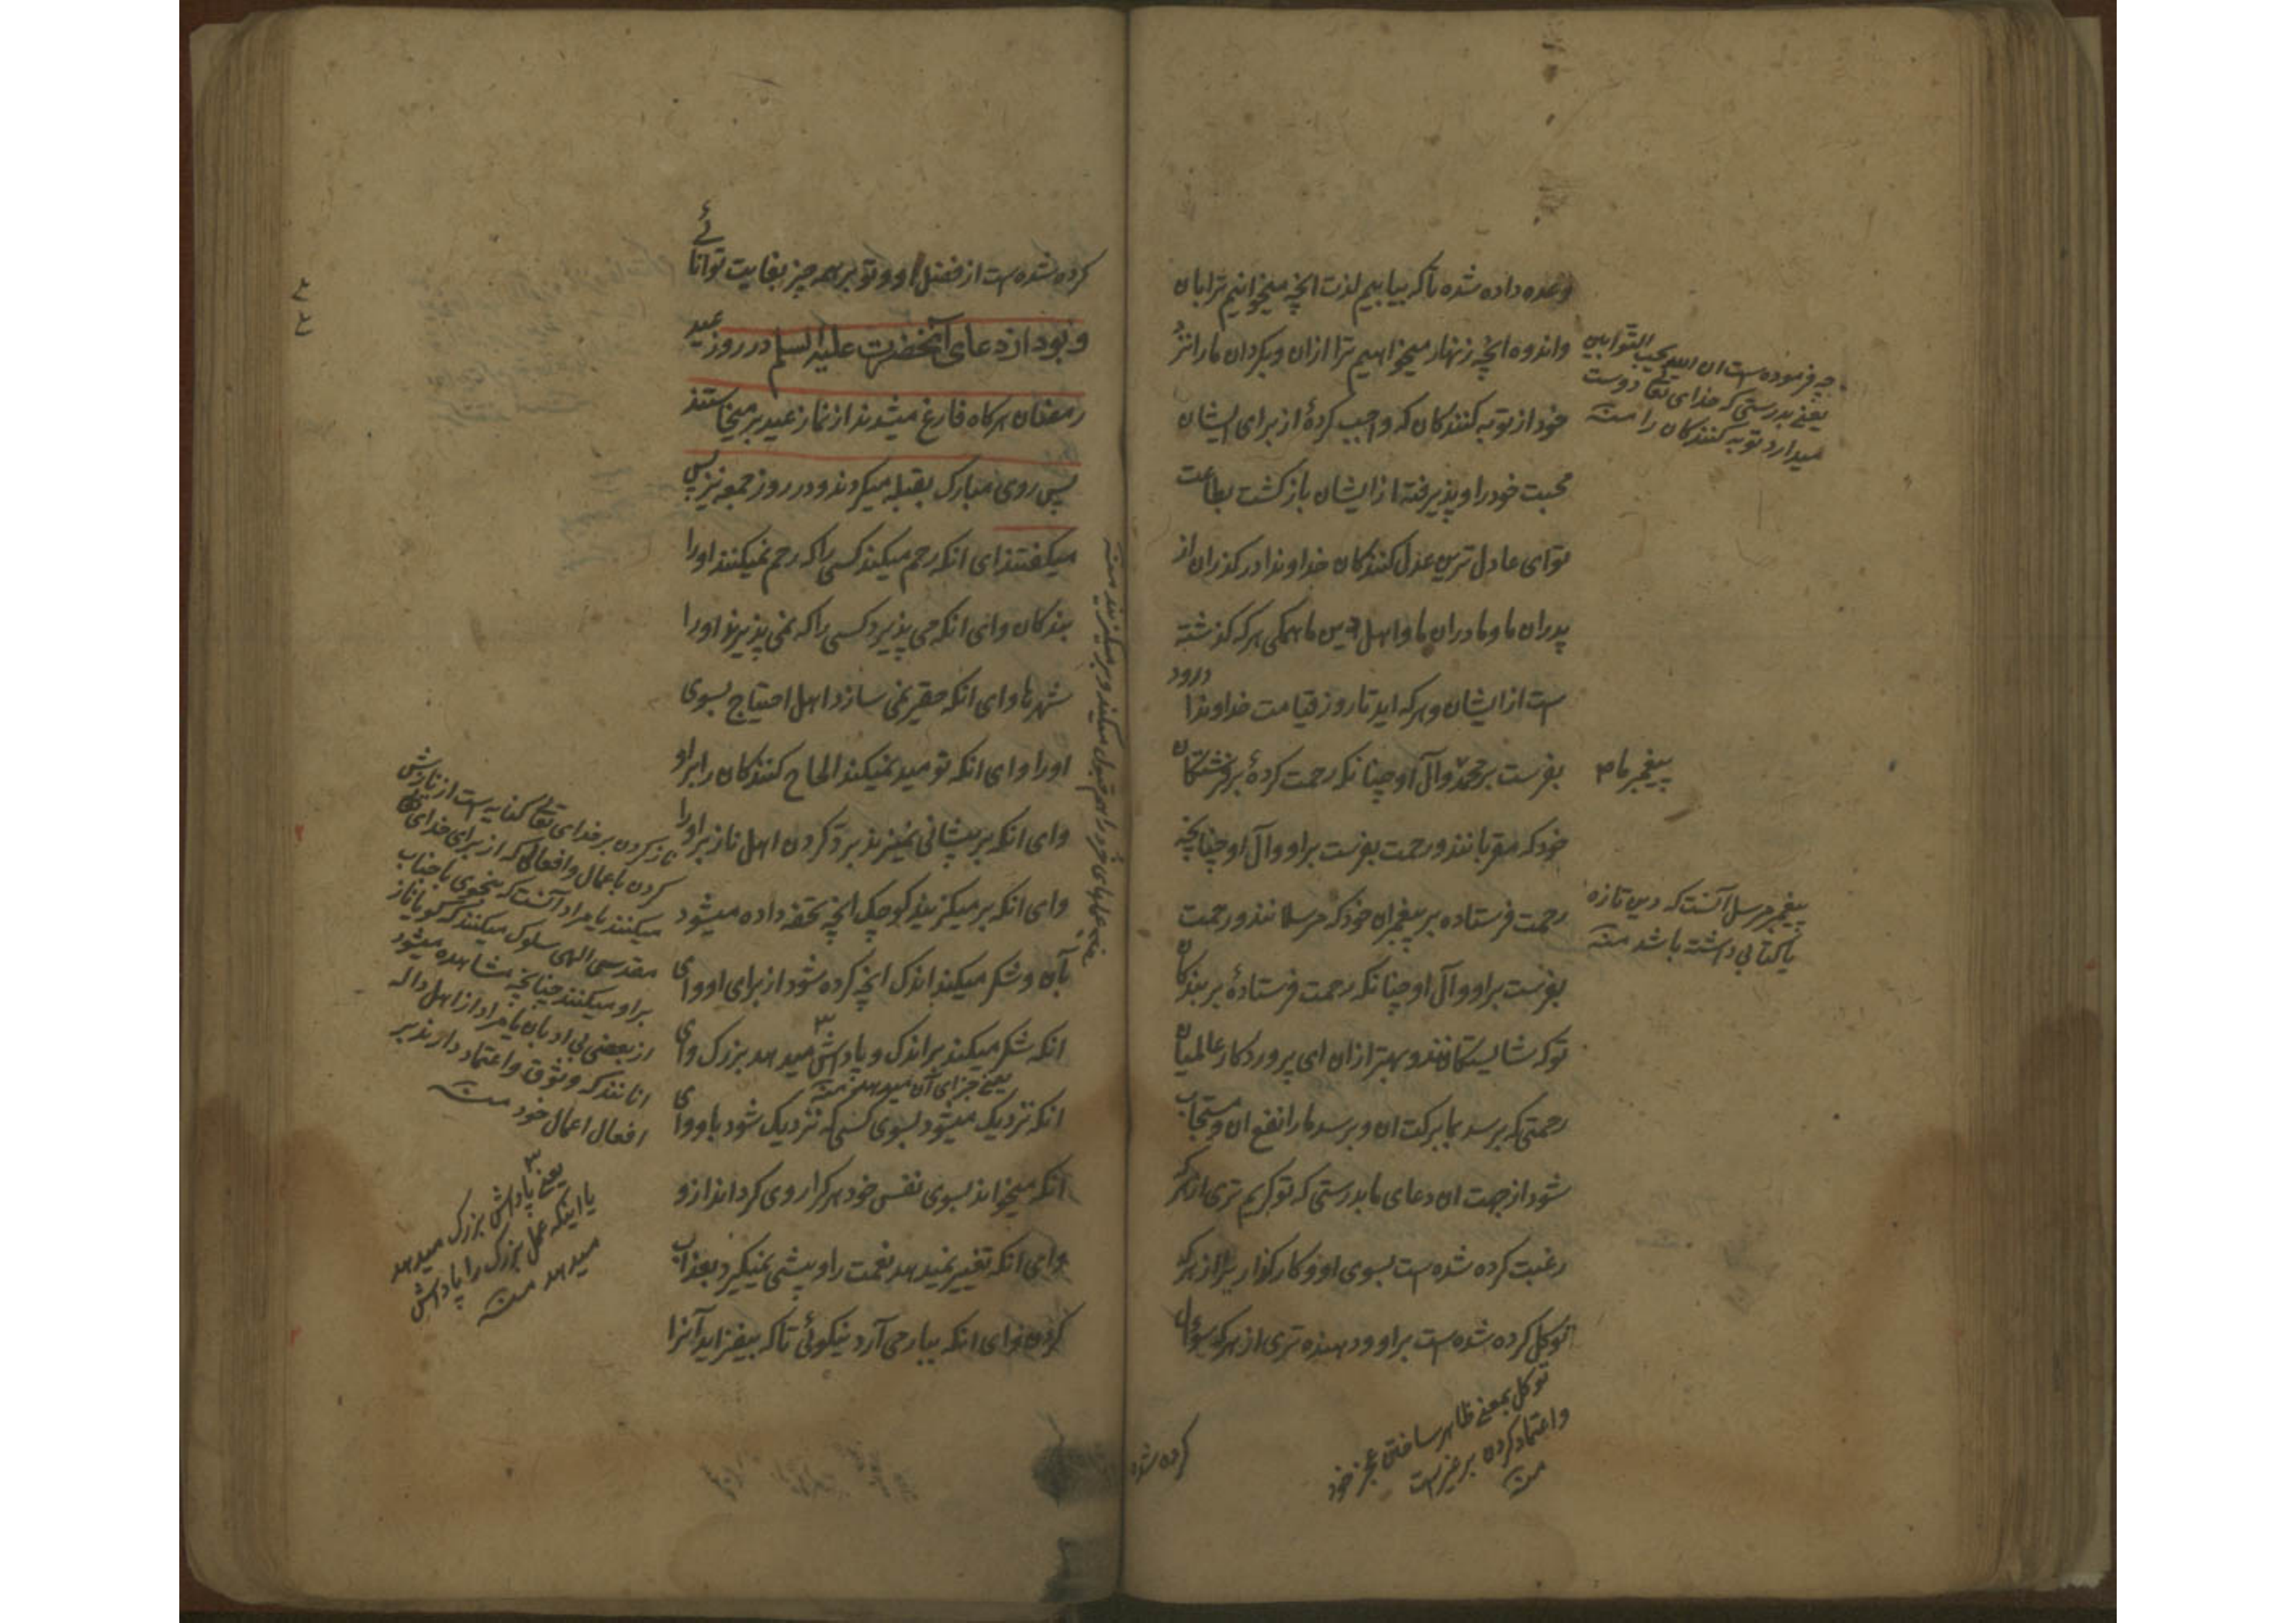 وعده داده شده تا که بیابیم لذت انچه میخوانیم ترا بان
واندوه انچه زنهار میخواهیم ترا ازان وبکردان مارا نزد
خود از توبه کنندکان که واجب کردهٔ از برای ایشان
محبت خود را و پذیرفتهٔ از ایشان بازکشت بطاعت
تو ای عادل ترین عدل کنندکان خداوندا درکذران از
پدران ما و مادران ما و اهل دین ما همکی هرکه کذشته
ست از ایشان و هرکه اید تا روز قیامت خداوندا درود
بفرست بر محمد وآل او چنانکه رحمت کردهٔ بر فرشتکان
خود که مقربانند و رحمت بفرست بر او وآل او چنانچه
رحمت فرستاده بر پیغمبران خود که مرسلانند و رحمت
بفرست بر او وآل او چنانکه رحمت فرستادهٔ بر بندکان
تو که شایستکانند و بهتر ازان ای پروردکار عالمیان
رحمتی که برسد بما برکت ان و برسد مارا نفع ان و مستجاب
شود از جهت ان دعای ما بدرستی که تو کریم تری از هرکه
رغبت کرده شده ست بسوی او و کارکذار تر از هرکه
توکل کرده شده ست بر او و دهنده تری از هرکه سؤال
کرده شده
چه فرموده ست ان الله یحب التوابین
یعنی بدرستی که خدای تعالی دوست
میدارد توبه کنندکان را منه
پیغمبر ما
پیغمبر مرسل آنست که دین تازه
یا کتابی داشته باشد منه
توکل بمعنی ظاهر ساختن عجز خود
واعتماد کردن بر غیر است
منه
کرده شده ست از فضل او و تو بر همه چیز بغایت توانائی
و بود از دعای آنحضرت علیه السلم در روز عید
رمضان هرکاه فارغ میشدند از نماز عید بر میخاستند
پس روی مبارک بقبله میکردند و در روز جمعه نیز پس
میکفتند ای انکه رحم میکند کسی را که رحم نمیکنند او را
بندکان وای انکه می پذیرد کسی را که نمی پذیرند او را
شهرها وای انکه حقیر نمی سازد اهل احتیاج بسوی
او را وای انکه نومید نمیکند الحاح کنندکان را بر او
وای انکه بر پیشانی نمیزند برد کردن اهل ناز بر او را
وای انکه برمیکزیند کوچک انچه تحفه داده میشود
بآن و شکر میکند اندک انچه کرده شود از برای او وای
انکه شکر میکند بر اندک و پاداش میدهد بزرک وای
یعنی جزای آن میدهد منه
انکه نزدیک میشود بسوی کسی که نزدیک شود باو وای
انکه میخواند بسوی نفس خود هرکرا روی کرداند ازو
وای انکه تغییر نمیدهد نعمت را و پیشی نمیکیرد بعذاب
کردن وای انکه ببار می آرد نیکوئی تا که بیفزاید آنرا
یعنی عملهای خرد را هم قبول میکند و برمیکزیند منه
ناز کردن بر خدای تعالی کنایه ست از نازش
کردن باعمال وافعالی که از برای خدای تعالی
میکنند یا مراد آنست که بنحوی با جناب
مقدس الهی سلوک میکنند که کویا ناز
بر او میکنند چنانچه مشاهده میشود
از بعضی بی ادبان یا مراد از اهل داله
انانند که وثوق واعتماد دارند بر
افعال اعمال خود منه
یعنی پاداش بزرک میدهد
یا اینکه عمل بزرک را پاداش
میدهد منه